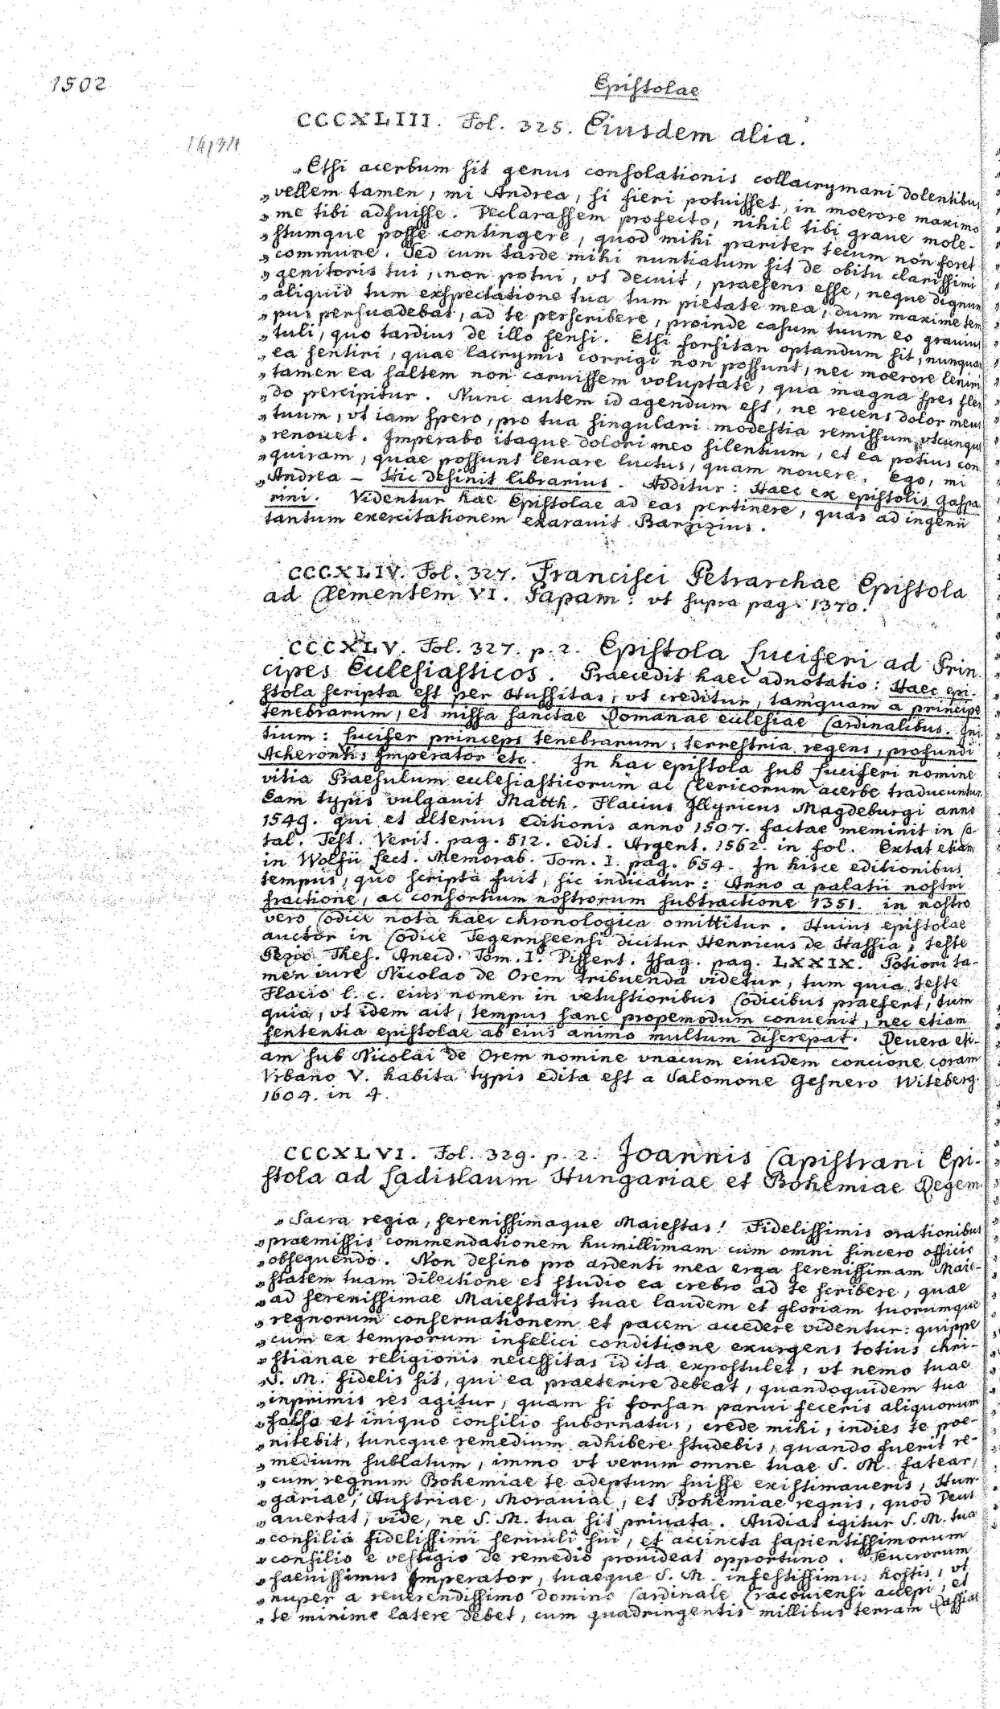 1502
Epistolae
CCCXLIII. Fol. 325. Eiusdem alia.
„Etsi acerbum sit genus consolationis collacrymani dolentibus,
„vellem tamen, mi Andrea, si fieri potuisset, in moerore maximo
„me tibi adfuisse. Declarassem profecto, nihil tibi graue mole-
„stumque posse contingere, quod mihi pariter tecum non foret
„commune. Sed cum tarde mihi nuntiatum sit de obitu clarissimi
„genitoris tui, non potui, vt decuit, praesens esse, neque dignum
„aliquid tum exspectatione tua tum pietate mea, dum maxime tem
„pus persuadebat, ad te perscribere, proinde casum tuum eo grauius
„tuli, quo tardius de illo sensi. Etsi forsitan optandum sit, nunquam
„ea sentiri, quae lacrymis corrigi non possunt, nec moerore leniri
„tamen ea saltem non caruissem voluptate, qua magna spes flen
„do percipitur. Nunc autem id agendum est, ne recens dolor meus
„tuum, vt iam spero, pro tua singulari modestia remissum vtcunque
„renouet. Imperabo itaque dolori meo silentium, et ea potius con
„quiram, quae possunt leuare luctus, quam mouere. Ego, mi
„Andrea – Hic desinit librarius. Additur: Haec ex epistolis Gaspa
rini. Videntur hae Epistolae ad eas pertinere, quas ad ingenii
tantum exercitationem exarauit Barzizius.
CCCXLIV. Fol. 327. Francisci Petrarchae Epistola
ad Clementem VI. Papam: vt supra pag. 1370.
CCCXLV. Fol. 327. p. 2. Epistola Luciferi ad Prin
cipes Ecclesiasticos. Praecedit haec adnotatio: Haec epi-
stola scripta est per Hussitas, vt creditur, tamquam a principe
tenebrarum, et missa sanctae Romanae ecclesiae Cardinalibus. Ini
tium: Lucifer princeps tenebrarum, terrestria regens, profundi
Acherontis Imperator etc. In hac epistola sub Luciferi nomine
vitia Praesulum ecclesiasticorum ac Clericorum acerbe traducuntur
Eam typis vulgauit Matth. Flacius Illyricus Magdeburgi anno
1549. qui et alterius editionis anno 1507. factae meminit in Ca-
tal. Test. Verit. pag. 512. edit. Argent. 1562. in fol. Extat etiam
in Wolfii Lect. Memorab. Tom. I. pag. 654. In hisce editionibus
tempus, quo scripta fuit, sic indicatur: Anno a palatii nostri
fractione, ac consortium nostrorum subtractione 1351. in nostro
vero Codice nota haec chronologica omittitur. Huius epistolae
auctor in Codice Tegernseensi dicitur Henricus de Hassia, teste
Pezio Thes. Anecd. Tom. I. Dissert. Isag. pag. LXXIX. Potiori ta-
men iure Nicolao de Orem tribuenda videtur, tum quia teste
Flacio l. c. eius nomen in vetustioribus Codicibus praefert, tum
quia, vt idem ait, tempus sane propemodum conuenit, nec etiam
sententia epistolae ab eius animo multum discrepat. Reuera eti-
am sub Nicolai de Orem nomine vnacum eiusdem concione coram
Vrbano V. habita typis edita est a Salomone Gesnero Witeberg.
1604. in 4.
CCCXLVI. Fol. 329. p. 2. Joannis Capistrani Epi-
stola ad Ladislaum Hungariae et Bohemiae Regem.
„Sacra regia, serenissimaque Maiestas! Fidelissimis orationibus
„praemissis commendationem humillimam cum omni sincero officio
„obsequendo. Non desino pro ardenti mea erga serenissimam Maie-
„statem tuam dilectione et studio ea crebro ad te scribere, quae
„ad serenissimae Maiestatis tuae laudem et gloriam tuorumque
„regnorum conseruationem et pacem accedere videntur: quippe
„cum ex temporum infelici conditione exurgens totius chri-
„stianae religionis necessitas id ita expostulet, vt nemo tuae
„S. M. fidelis sit, qui ea praeterire debeat, quandoquidem tua
„inprimis res agitur, quam si forsan parui feceris aliquorum
„falso et iniquo consilio subornatus, crede mihi, indies te poe-
„nitebit, tuncque remedium adhibere studebis, quando fuerit re-
„medium sublatum, immo vt verum omne tuae S. M. fatear,
„cum regnum Bohemiae te adeptum fuisse existimaueris, Hun-
„gariae, Austriae, Morauiae, et Bohemiae regnis, quod Deus
„auertat, vide, ne S. M. tua sit priuata. Audiat igitur S. M. tua
„consilia fidelissimi seruuli sui, et accincta sapientissimorum
„consilio e vestigio de remedio prouideat opportuno. Teucrorum
„saeuissimus Imperator, tuaeque S. M. infestissimus hostis, vt
„nuper a reuerendissimo domino Cardinale Cracouiensi accepi, et
„te minime latere debet, cum quadringentis millibus terram Rassiae